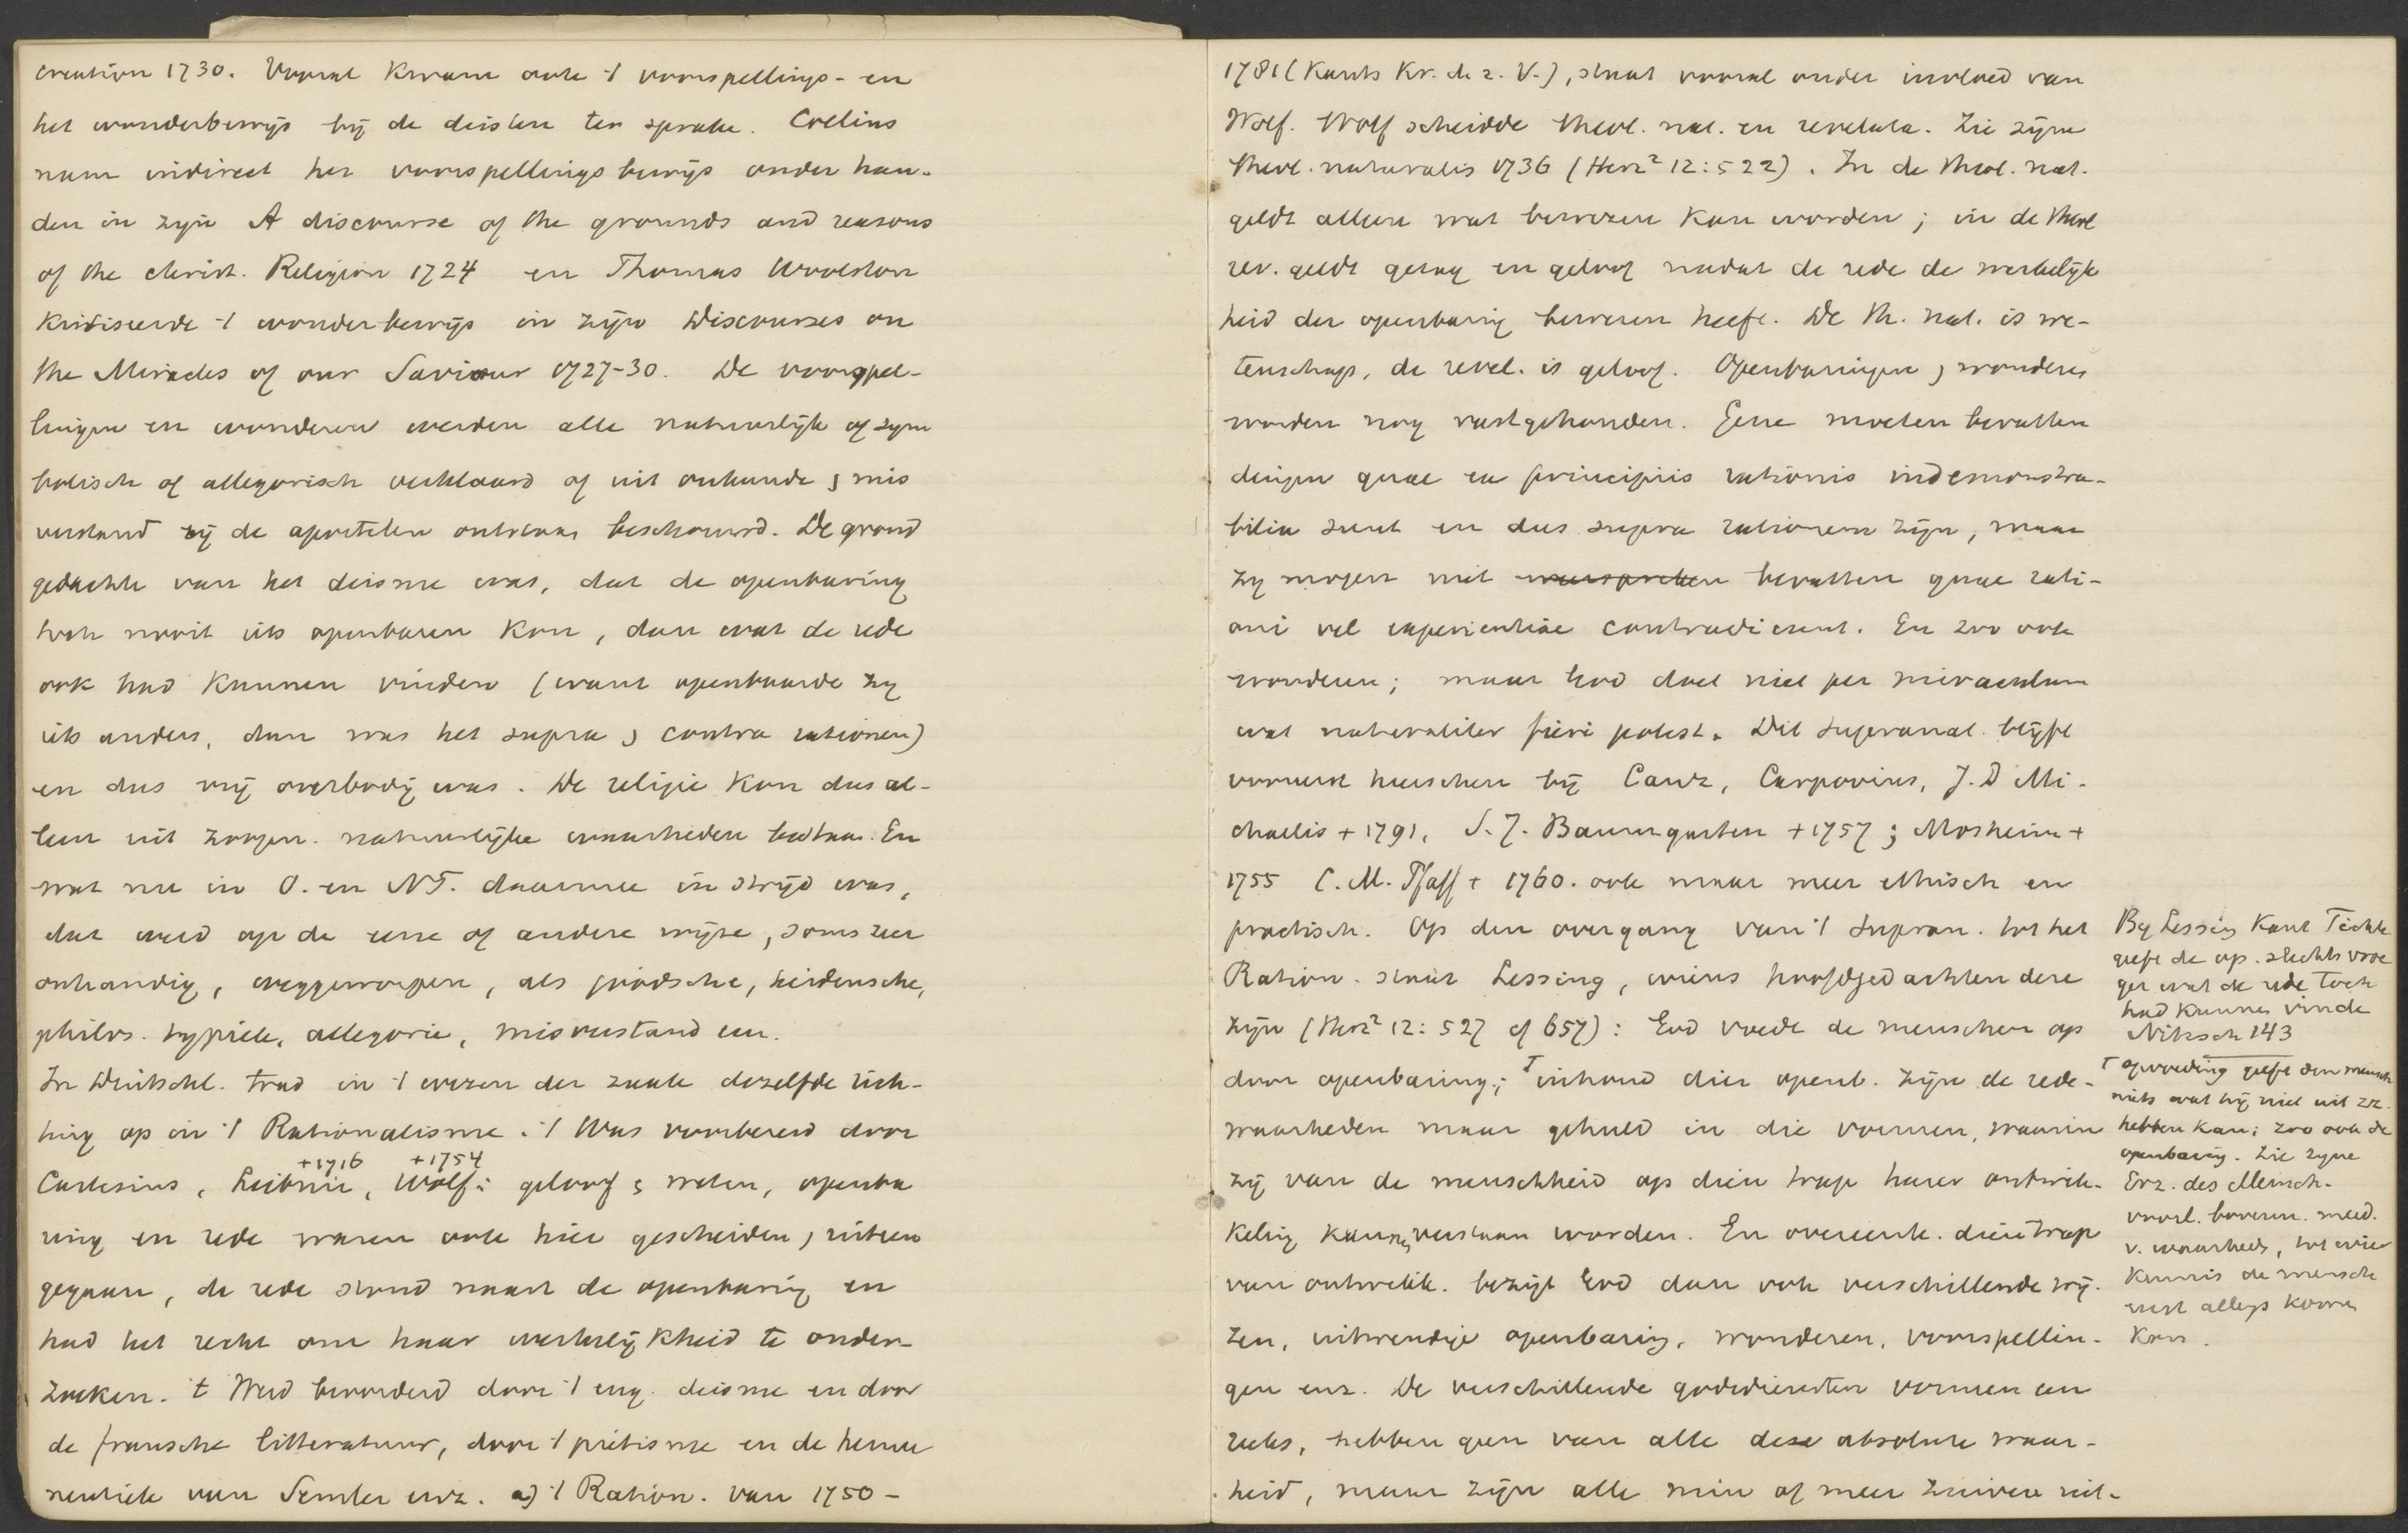 creation 1730. Vooral kwam ook 't voorspellings- en
het wonderbewijs bij de deisten ter sprake. Collins
nam indirect het voorspellingsbewijs onder han-
den in zijn A discourse of the grounds and reasons
of the christ. Religion 1724 en Thomas Woolston
kritiseerde 't wonderbewijs in zijn Discourses on
the Miracles of our Saviour 1727-30. De voorspel-
lingen en wonderen werden alle natuurlijk of sym
bolisch of allegorisch verklaard of uit onkunde & mis
verstand bij de apostelen ontstaan beschouwd. De grond
gedachte van het deisme was, dat de openbaring
toch nooit iets openbaren kon, dan wat de rede
ook had kunnen vinden (want openbaarde zij
iets anders, dan was het supra & contra rationem)
en dus vrij overbodig was. De religie kon dus al-
leen uit zoogen. natuurlijke waarheden bestaan. En
wat nu in O. en NT. daarmee in strijd was,
dat werd op de eene of andere wijze, soms zeer
onhandig, weggeworpen, als joodsche, heidensche,
philos. typiek, allegorie, misverstand enz.
In Deutschl. trad in 't wezen der zaak dezelfde rich-
ting op in 't Rationalisme. 't Was voorbereid door
+1716 +1754
Cartesius, Leibniz, Wolf: geloof & weten, openba
ring en rede waren ook hier gescheiden & uiteen
gegaan, de rede stond naast de openbaring en
had het recht om haar werkelijkheid te onder-
zoeken. 't Werd bevorderd door 't eng. deisme en door
de fransche litteratuur, door 't piëtisme en de herme
neutiek van Semler enz. a) 't Ration. van 1750-
1781 (Kants Kr. d. r. V.), staat vooral onder invloed van
Wolf. Wolf scheidde theol. nat. en revelata. Zie zijne
theol. naturalis 1736 (Herz² 12:522). In de theol. nat.
geldt alleen wat bewezen kan worden; in de theol
rev. geldt gezag en geloof nadat de rede de werkelijk
heid der openbaring bewezen heeft. De th. nat. is we-
tenschap, de revel. is geloof. Openbaringen & wonderen
worden nog vastgehouden. Gene moeten bevatten
dingen quae ex principiis rationis indemonstra-
bilia sunt en dus supra rationem zijn, maar
zij mogen niet bevatten quae rati-
oni vel experientiae contradicunt. En zoo ook
wonderen; maar God doet niet per miraculum
wat naturaliter fieri potest. Dit supranat. blijft
vooreerst heerschen bij Canz, Carpovius, J. D Mi-
chaelis +1791, S. J. Baumgarten +1757; Mosheim +
1755 C. M. Pfaff + 1760. ook maar meer ethisch en
practisch. Op den overgang van 't supran. tot het
Ration. staat Lessing, wiens hoofdgedachten deze
zijn (Herz² 12:527 cf 657): God voedt de menschen op
door openbaring; ⊤ inhoud dier openb. zijn de rede-
waarheden maar gehuld in die vormen, waarin
zij van de menschheid op dien trap harer ontwik-
keling kunnen verstaan worden. En overeenk. dien trap
van ontwikk. bezigt God dan ook verschillende wij-
zen, uitwendige openbaring, wonderen, voorspellin-
gen enz. De verschillende godsdiensten vormen een
reeks, hebben geen van alle deze absolute waar-
heid, maar zijn alle min of meer zuivere uit-
By Lessing Kant Fichte
geeft de op. slechts vroe
ger wat de rede toch
had kunnen vinde
Nitzsch 143
⊤ opvoeding geeft den mensch
niets wat hij niet uit zz.
hebben kan; zoo ook de
openbaring. Zie zyne
Erz. des Mensch.
v. waarheid, tot wier
kennis de mensch
eerst allengs komen
kon.